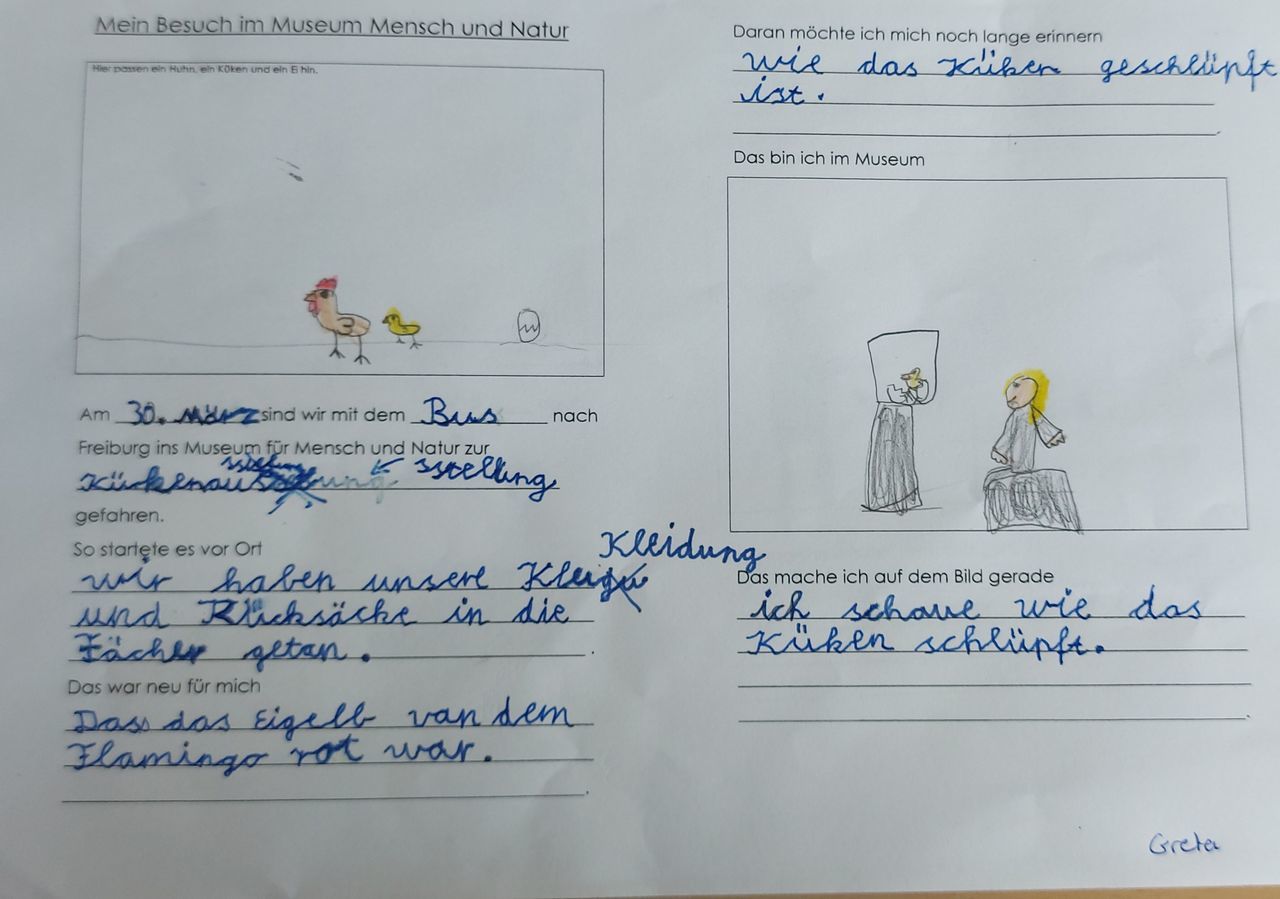 Mein Besuch im Museum Mensch und Natur
Hier passen ein Huhn, ein Küken und ein Ei hin.
Am 30. März sind wir mit dem Bus nach
Freiburg ins Museum für Mensch und Natur zur
Kückenaus sstellung
gefahren.
So startete es vor Ort
Kleidung
wir haben unsere
und Rücksäcke in die
Fächer getan.
Das war neu für mich
Dass das Eigelb van dem
Flamingo rot war.
Daran möchte ich mich noch lange erinnern
wie das Küken geschlüpft
ist.
Das bin ich im Museum
Das mache ich auf dem Bild gerade
ich schaue wie das
Küken schlüpft.
Greta